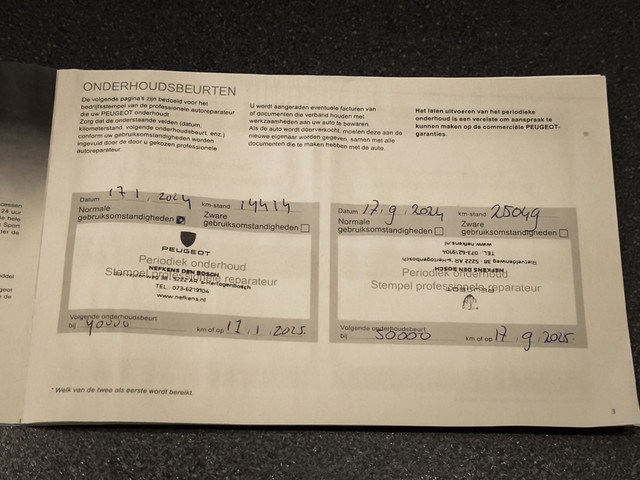 ONDERHOUDSBEURTEN
De volgende pagina's zijn bedoeld voor het
bedrijfstempel van de professionele autoreparateur
die uw PEUGEOT onderhoudt.
Zorg dat de onderstaande velden (datum,
kilometerstand, volgende onderhoudsbeurt, enz.)
conform uw gebruiksomstandigheden worden
ingevuld door de door u gekozen professionele
autoreparateur.
U wordt aangeraden eventuele facturen van
of documenten die verband houden met
werkzaamheden aan uw auto te bewaren.
Als de auto wordt doorverkocht, moeten deze aan de
nieuwe eigenaar worden gegeven, samen met alle
documenten die te maken hebben met de auto.
Het laten uitvoeren van het periodieke
onderhoud is een vereiste om aanspraak te
kunnen maken op de commerciële PEUGEOT-
garanties.
Datum: 17.1.2024 km-stand: 14414
Normale Zware
gebruiksomstandigheden gebruiksomstandigheden
PEUGEOT
Periodiek onderhoud
NEFKENS DEN BOSCH
Stempel professionele reparateur
38 - 5222 AB 's-Hertogenbosch
TEL.: 073-6219104
www.nefkens.nl
Volgende onderhoudsbeurt
bij 40000 km of op 17.1.2025.
Datum: 17.9.2024 km-stand: 25049
Normale Zware
gebruiksomstandigheden gebruiksomstandigheden
www.nefkens.nl
TEL.: 073-6219104
Rietveldenweg 38, 5222 AB 's-Hertogenbosch
Periodiek onderhoud
NEFKENS DEN BOSCH
Stempel professionele reparateur
PEUGEOT
Volgende onderhoudsbeurt
bij 50000 km of op 17.9.2025.
* Welk van de twee als eerste wordt bereikt.
3
24 uur
hele
Sport
der de
de